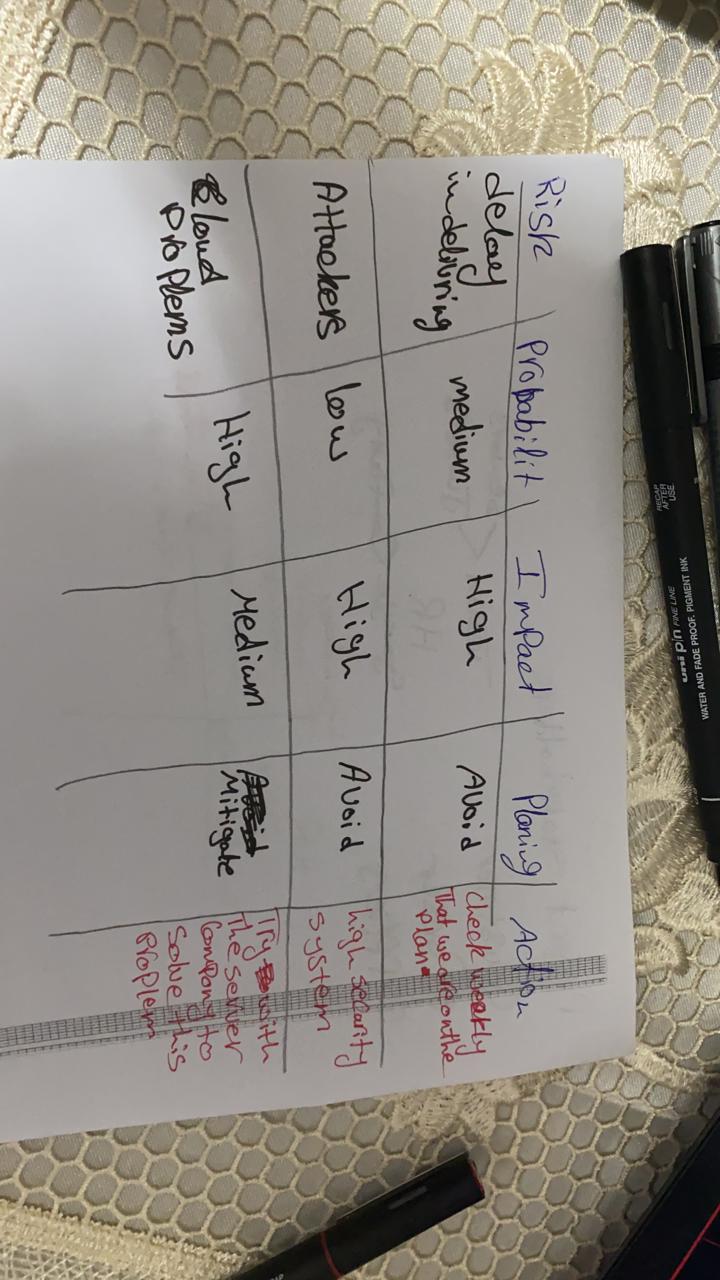 Risk Probabilit Impact Planing Action
delay
in deliviring
medium
High
Avoid
check weekly
That we are on the
Plan
Attackers
low
High
Avoid
high security
system
Cloud
Proplems
High
Medium
Mitigate
Try with
The server
Company to
solve this
Proplem
RECAP
AFTER
USE.
uni pin FINE LINE
WATER AND FADE PROOF, PIGMENT INK